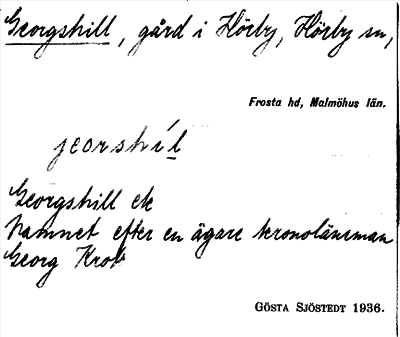 Georgshill, gård i Hörby, Hörby sn,
Frosta hd, Malmöhus län.
jeorshíl
Georgshill ek
Namnet efter en ägare kronolänsman
Georg Krok
GÖSTA SJÖSTEDT 1936.